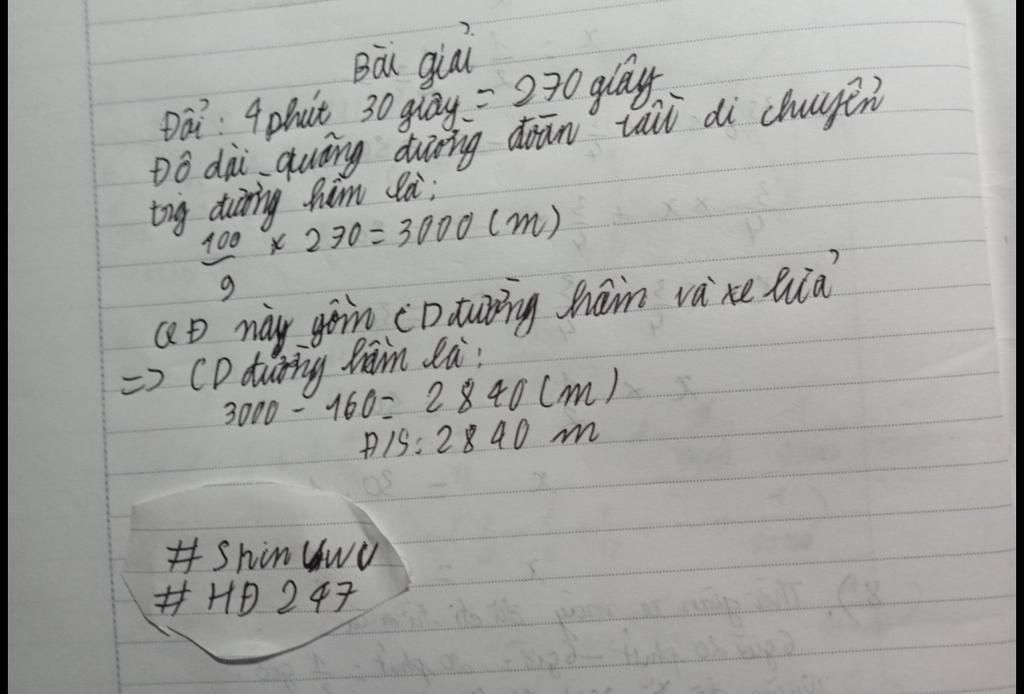 Bài giải
Đổi: 4 phút 30 giây = 270 giây
Độ dài quãng đường đoàn tàu di chuyển
trg đường hầm là:
100/9 × 270 = 3000 (m)
QĐ này gồm CD đường hầm và xe lửa
=> CD đường hầm là:
3000 - 160 = 2840 (m)
Đ/S: 2840 m
# Shin UwU
# HĐ 247